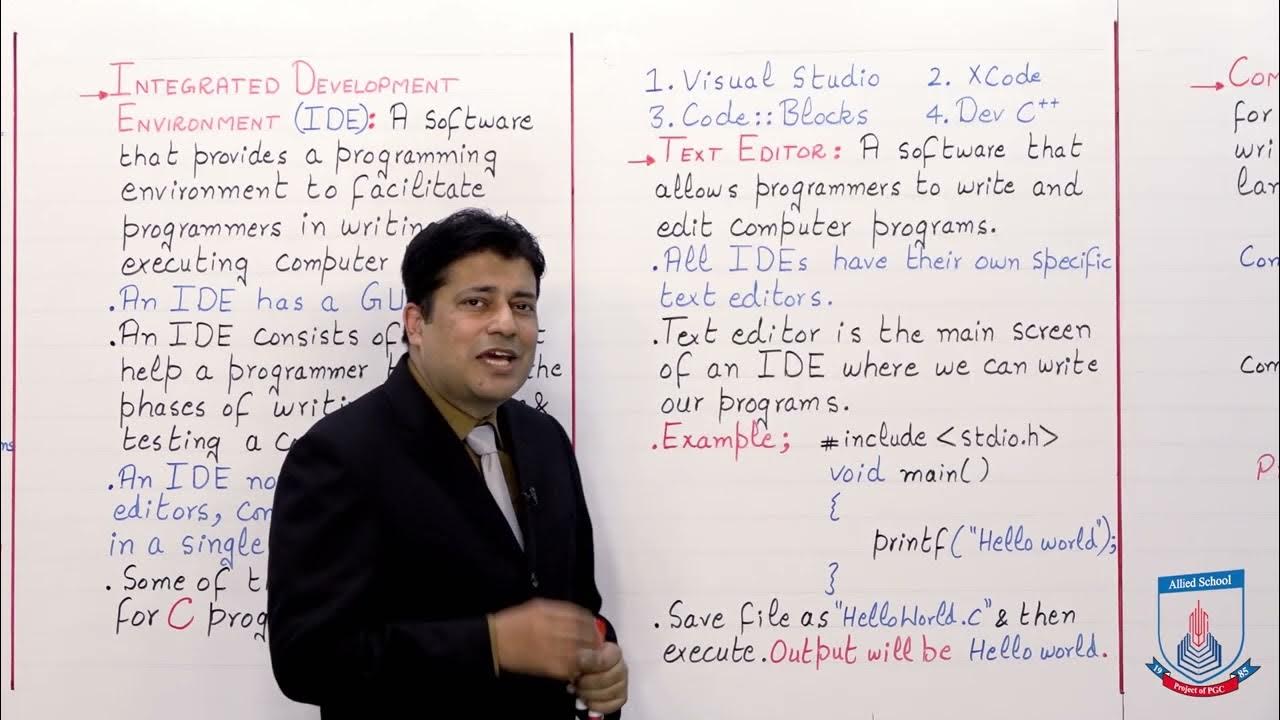 → INTEGRATED DEVELOPMENT
ENVIRONMENT (IDE): A software
that provides a programming
environment to facilitate
programmers in
executing computer
.An IDE has a
.An IDE consists of
help a programmer the
phases of &
testing a
.An IDE
editors,
in a single
. Some of
for C
1. Visual Studio 2. XCode
3. Code::Blocks 4. Dev C++
→ TEXT EDITOR: A software that
allows programmers to write and
edit computer programs.
.All IDEs have their own specific
text editors.
.Text editor is the main screen
of an IDE where we can write
our programs.
.Example; #include <stdio.h>
void main()
{
printf("Hello world");
}
. Save file as "HelloWorld.c" & then
execute. Output will be Hello world.
→
for
Allied School
1985
Project of PGC